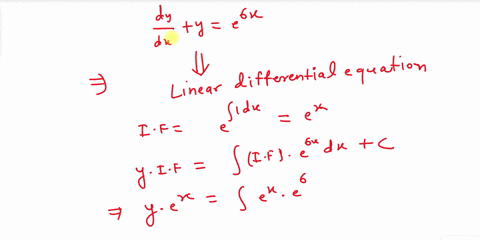 dy/dx + y = e^6x
⇒ ⇓ Linear differential equation
I.F = e^∫1dx = e^x
y. I.F = ∫(I.F). e^6x dx + C
⇒ y. e^x = ∫ e^x. e^6